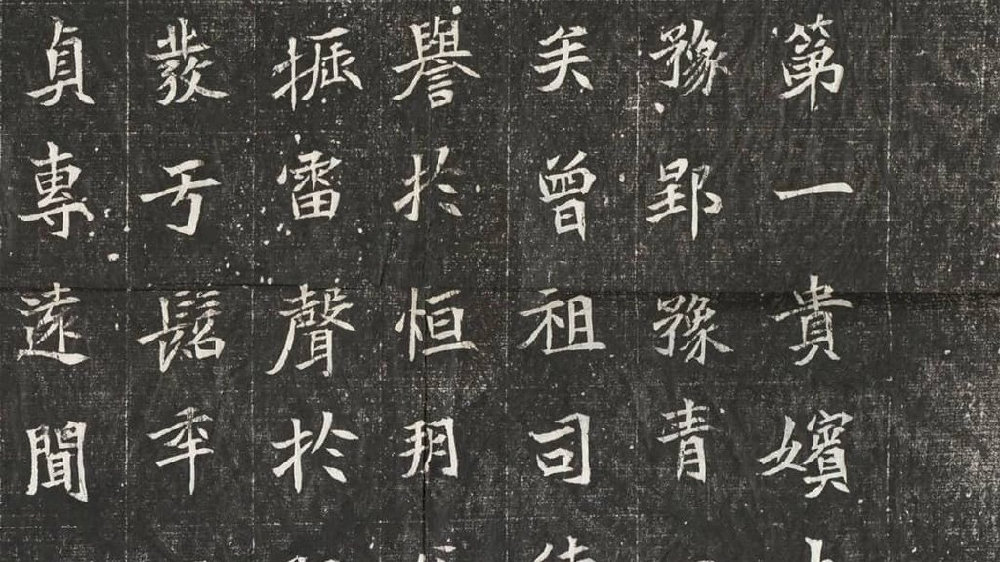 第一貴嬪
豫郢豫青
矣曾祖司
譽於恒朔
振雷聲於
發于髫年
貞專遠聞